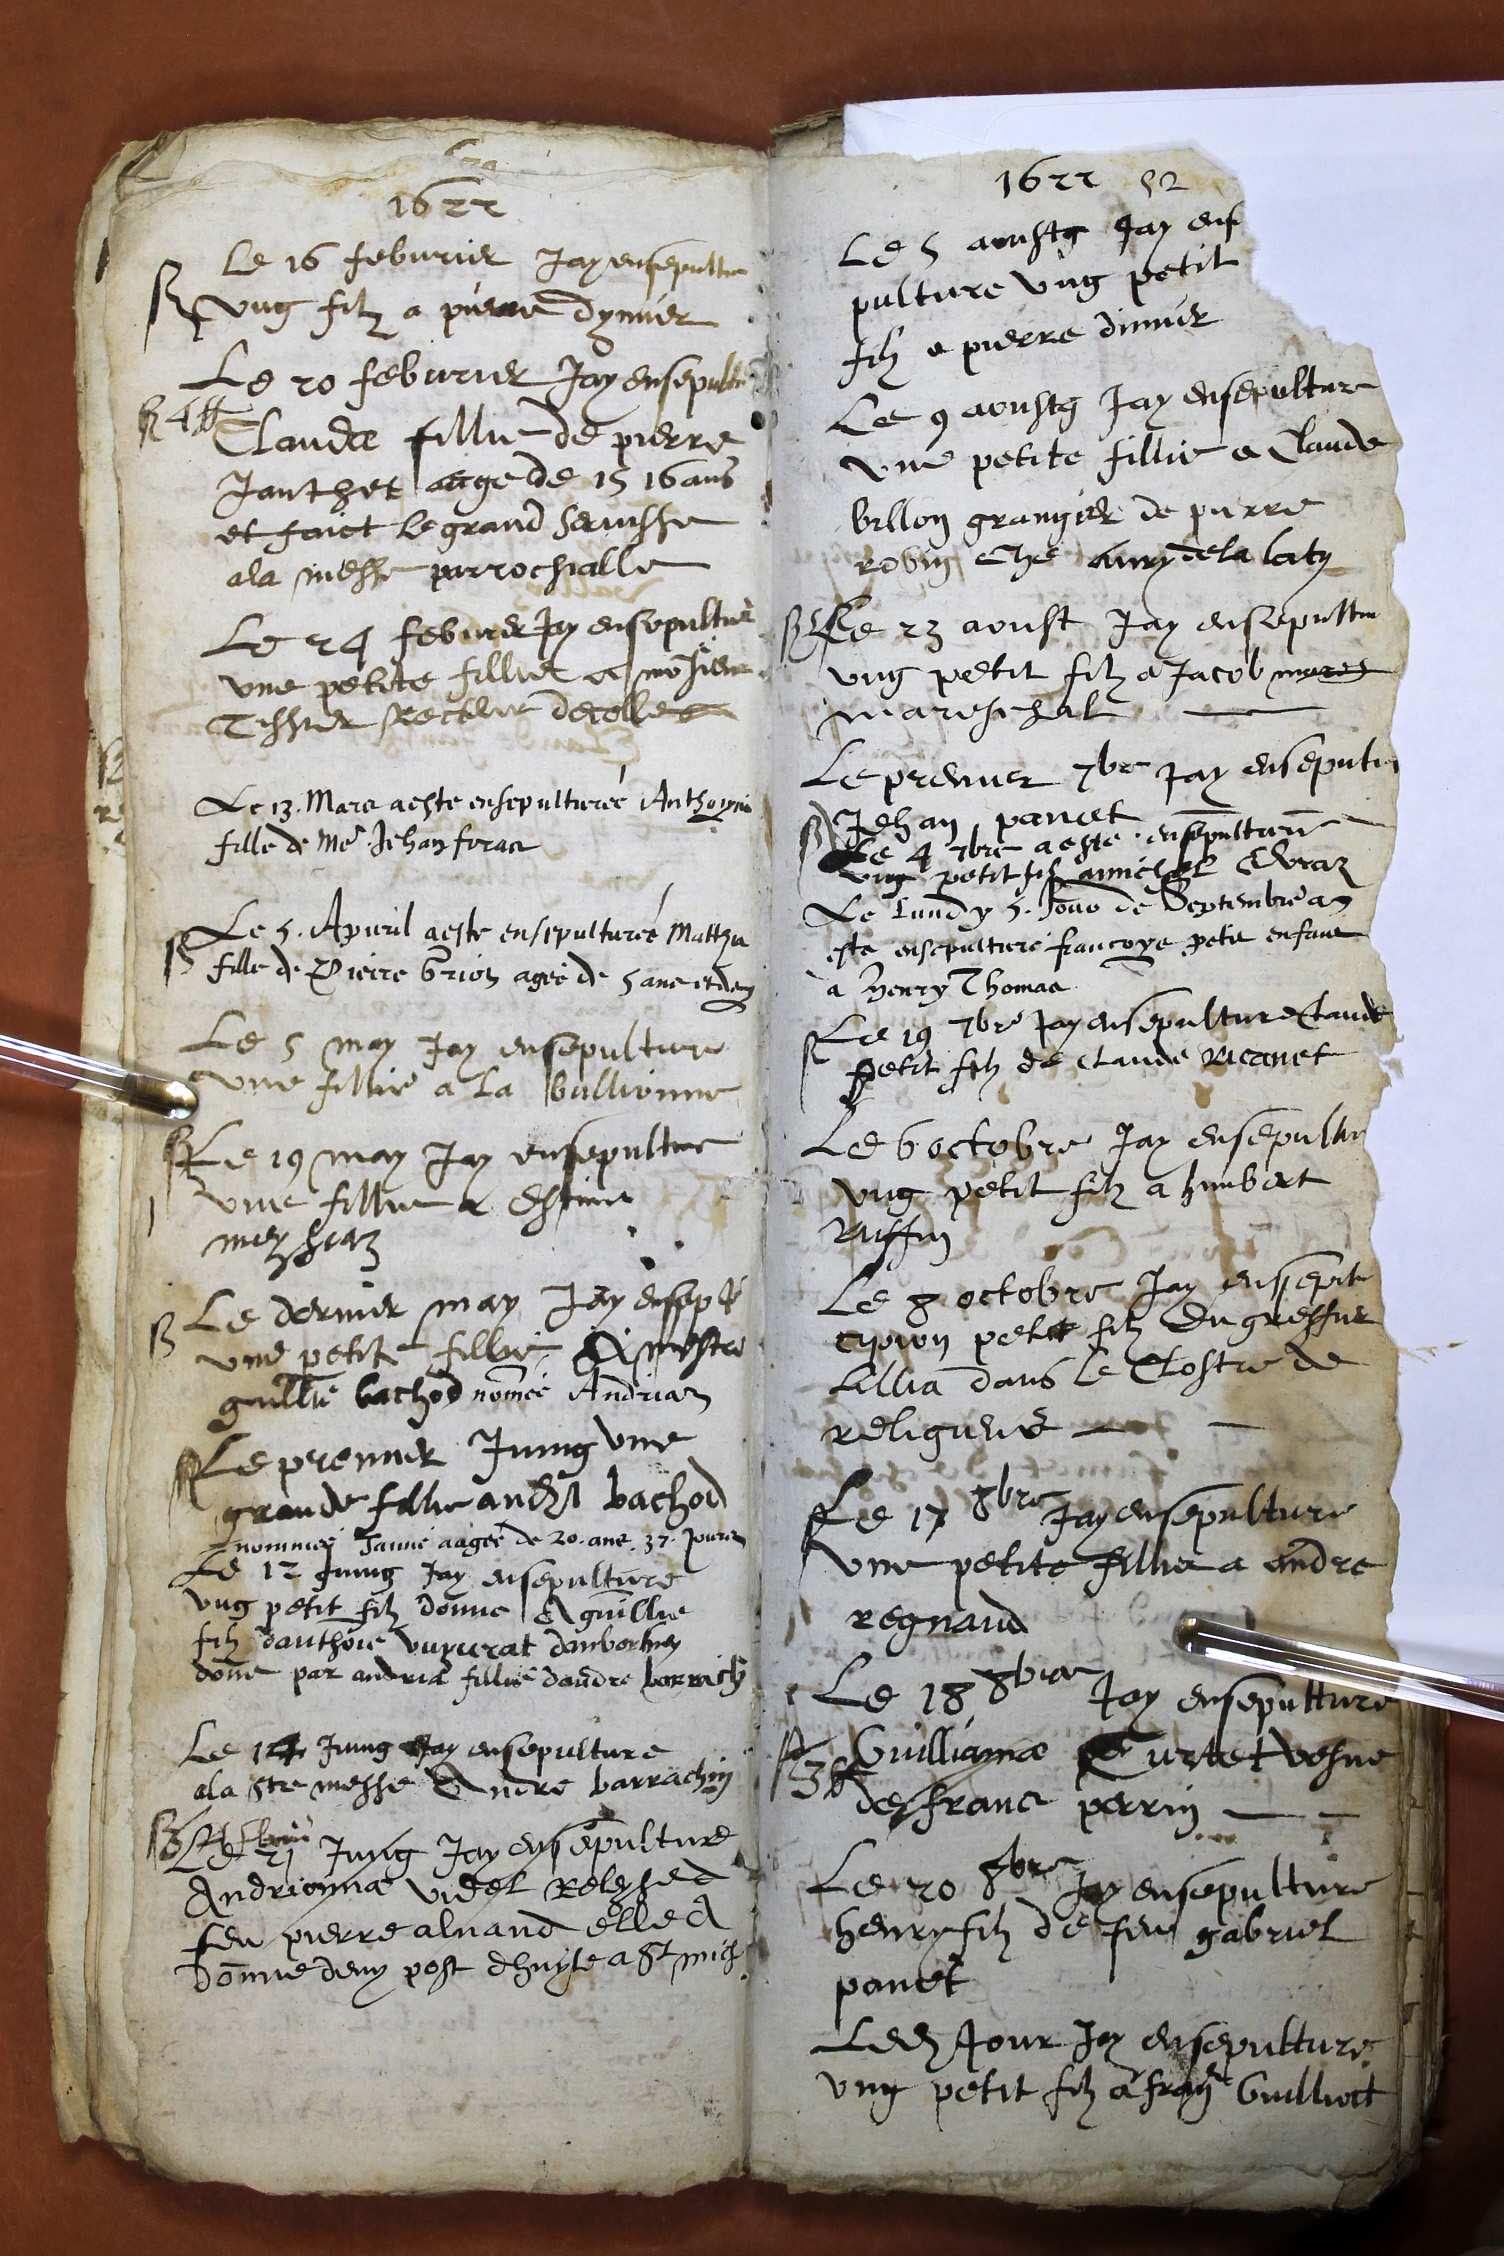 1622
Le 16 feburier Jay ensepulture
ung filz a pierre dymier
Le 20 feburier Jay ensepulture
4 ff
Clauda fillie de pierre
Janthet aage de 15 16 ans
et faict le grand servisse
a la messe parrochialle
Le 24 feburier Jay ensepulture
une petite fillie a monsieur
Tissier Recteur descolle
Le 13. Mars a este ensepulturée Anthoyne
fille de Me Jehan foraz
Le 5. Apuril a este ensepulturée Matthia
fille de Pierre Brion agée de 5 ans et demy
Le 5 may Jay ensepulture
une fillie a la bullionne
Le 19 may Jay ensepulture
une fillie a Estiene
Le dernier may Jay ensep
une petite fillie A mestre
guillie bachod nomee Andriaz
Le premier Juing une
grande fillie andre bachod
nommey Janne aagée de 20. ans. 37. jours
Le 12 Juing Jay ensepulture
ung petit filz donne A guillie
filz danthoie
donne par andria fillie dandre barrachin
Le 14 Juing Jay ensepulture
a la ste messe Andre barrachin
Le 21 Juing Jay ensepulture
Andrionna videl Releyssee
feu pierre alnand elle A
donne demy post dhuyle a St mich
1622 52
Le 5 aoustg Jay ens
pulture ung petit
filz a pierre dimier
Le 9 aoustg Jay ensepulture
une petite fillie a Claude
billon grangier de pierre
robin
Le 23 aoust Jay ensepulture
ung petit filz a Jacob
mareschal
Le premier 7bre Jay ensepultu
Jehan panet
Le 4 7bre a este ensepulture
ung petit filz a michel
Le Lundy 5. Jour de Septembre a
este ensepulture francoyse petit enfant
à Henry Thomas
Le 19 7bre Jay ensepulture Claude
petit filz de Claude Ricanet
Le 6 octobre Jay ensepultur
ung petit filz a humbert
Ruffin
Le 8 octobre Jay ensepult
petit filz du greffier
Lillia dans le Clostre de
religieuse
Le 17 8bre Jay ensepulture
une petite fillie a andre
regnaud
Le 18 8bre Jay ensepulture
3 ff
Guilliama Curtet vesve
de franc perrin
Le 20 8bre Jay ensepulture
henry filz de feu gabriel
panet
Led Jour Jay ensepulture
ung petit filz a franc Guilliot